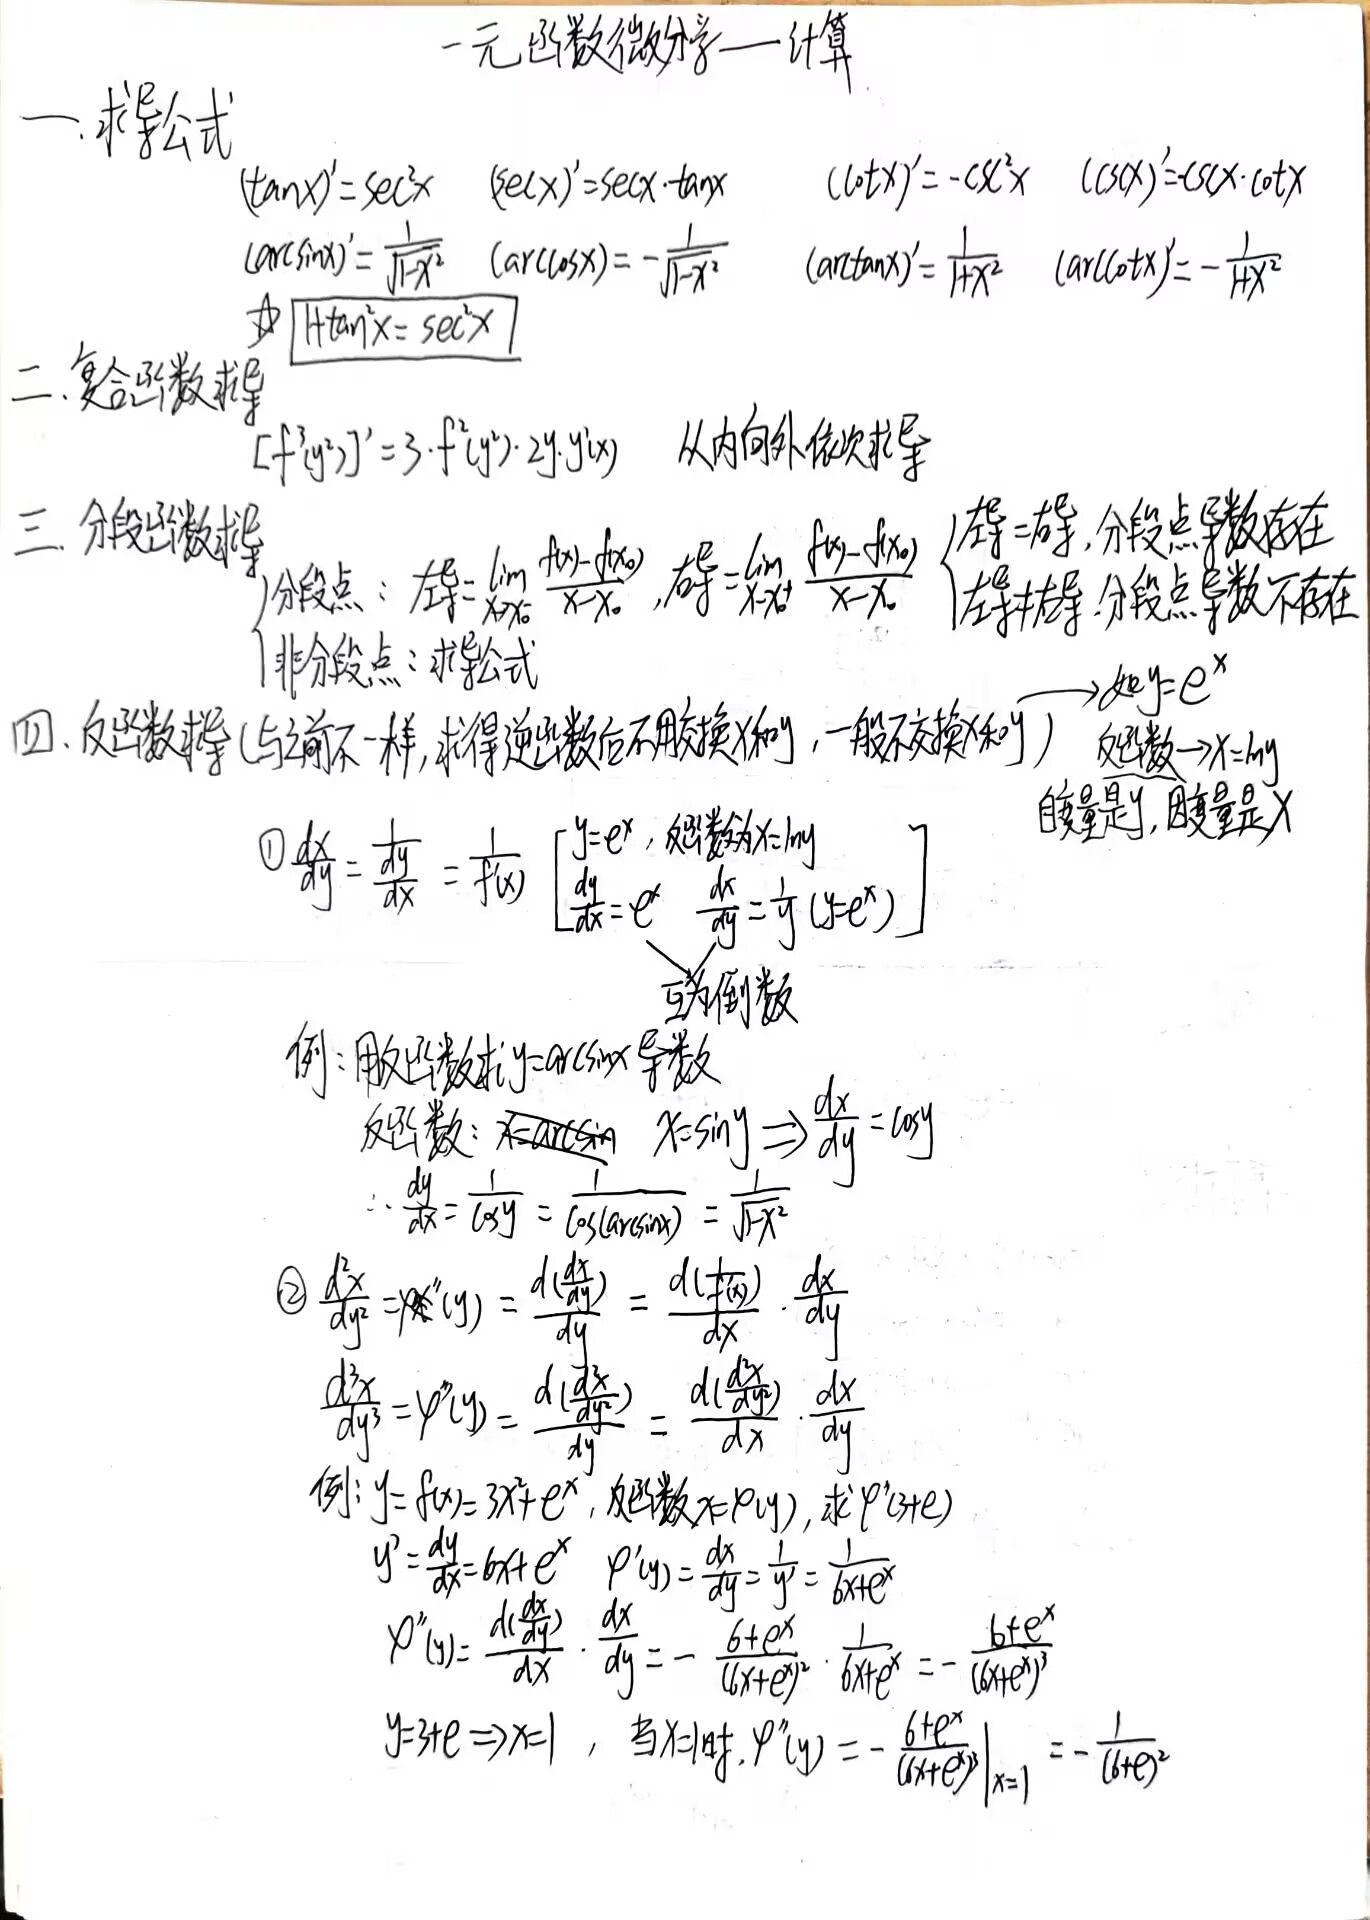 一元函数微分学——计算
一.求导公式
(tanx)'=sec²x (secx)'=secx·tanx (cotx)'=-csc²x (cscx)'=-cscx·cotx
(arcsinx)'=1/√(1-x²) (arccosx)=-1/√(1-x²) (arctanx)'=1/(1+x²) (arccotx)'=-1/(1+x²)
☆ 1+tan²x=sec²x
二.复合函数求导
[f³(y²)]'=3·f²(y²)·2y·y'(x) 从内向外依次求导
三.分段函数求导
分段点：左导=lim x→x₀⁻ (f(x)-f(x₀))/(x-x₀)，右导=lim x→x₀⁺ (f(x)-f(x₀))/(x-x₀) { 左导=右导，分段点导数存在
左导≠右导.分段点导数不存在
非分段点：求导公式
四.反函数求导(与之前不一样,求得逆函数后不用交换x和y，一般不交换x和y) → 如y=eˣ
反函数→x=lny
自变量是y，因变量是x
① dx/dy=1/(dy/dx)=1/f'(x) [y=eˣ，反函数为x=lny
dy/dx=eˣ dx/dy=1/y (y=eˣ)]
互为倒数
例：用反函数求y=arcsinx导数
反函数：x=arcsin x=siny⇒dx/dy=cosy
∴dy/dx=1/cosy=1/cos(arcsinx)=1/√(1-x²)
② d²x/dy²=φ''(y)=d(dx/dy)/dy=d(1/f'(x))/dx·dx/dy
d³x/dy³=φ'''(y)=d(d²x/dy²)/dy=d(d²x/dy²)/dx·dx/dy
例：y=f(x)=3x²+eˣ，反函数x=φ(y)，求φ''(3+e)
y'=dy/dx=6x+eˣ φ'(y)=dx/dy=1/y'=1/(6x+eˣ)
φ''(y)=d(dx/dy)/dx·dx/dy=-(6+eˣ)/(6x+eˣ)²·1/(6x+eˣ)=-(6+eˣ)/(6x+eˣ)³
y=3+e⇒x=1，当x=1时.φ''(y)=-(6+eˣ)/(6x+eˣ)³|x=1=-1/(6+e)²